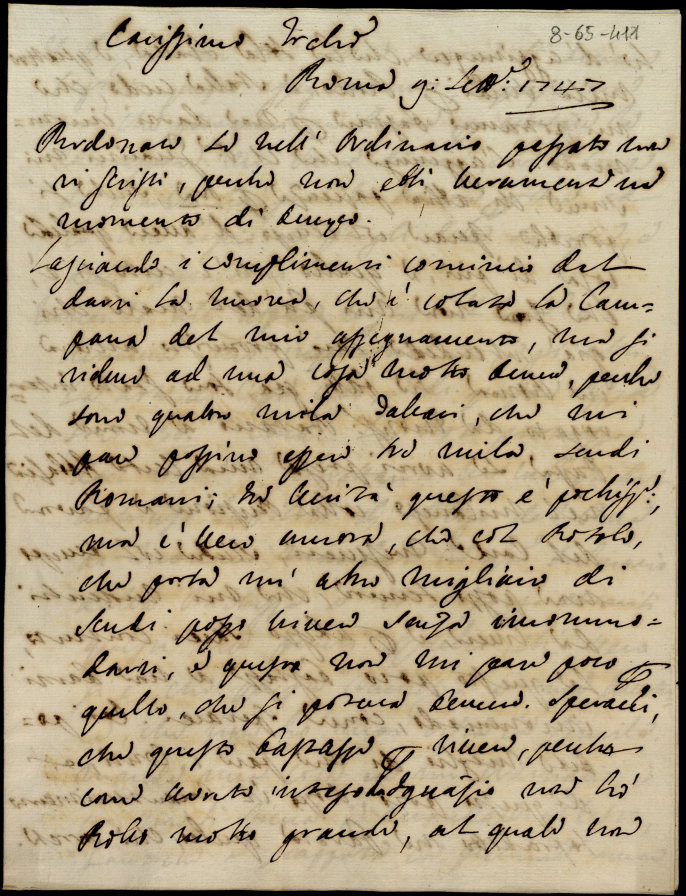 8-65-411
Carissimo Frello
Roma 9: Sett.e: 1747
Perdonate se nell' Ordinario passato non
vi scrissi, perche non ebbi veramente un
momento di tempo.
Lasciando i complimenti comincio dal
darvi la nuova, che è colata la Cam=
pana del mio assegnamento, ma si
riduce ad una cosa molto tenue, perche
sono quattro mila Talleri, che mi
pare possino essere tre mila scudi
Romani; in verità questo è pochiss.o:,
ma è vero ancora, che col Rotolo,
che porta un' altro migliaio di
scudi posso vivere senza incommo=
darvi, e questo non mi pare poco
quello, che si poteva temere. Sperarei,
che questo bastasse vivere, perche
come avrete inteso Ignazio non hò
Rollo molto grande, al quale non